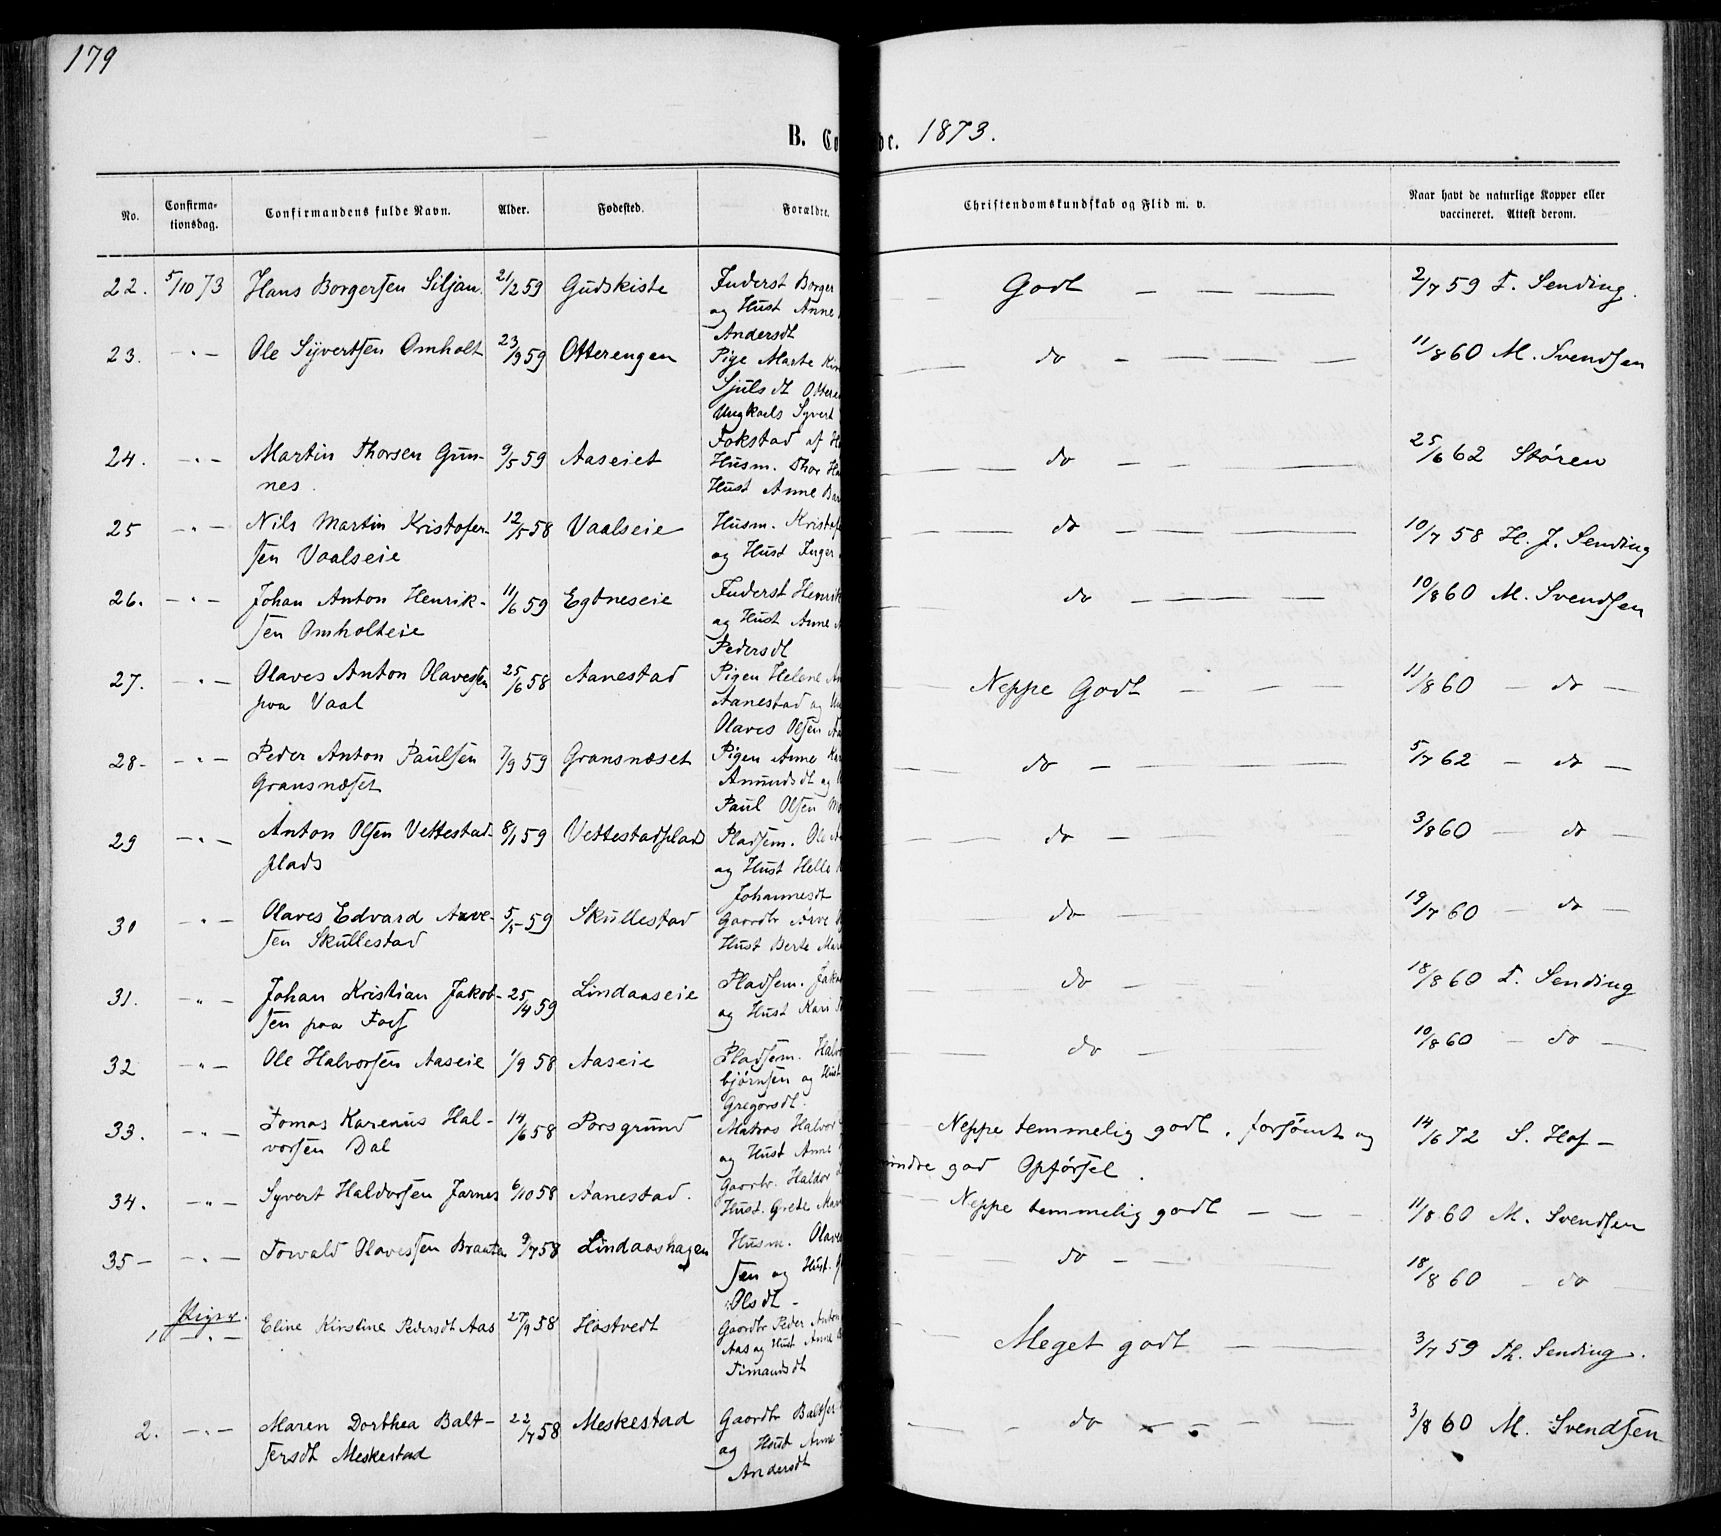 179
B. Co de. 1873.
No. Confirma-tionsdag. Confirmandens fulde Navn. Alder. Fødested. Forældre. Christendomskundskab og Flid m. v. Naar havt de naturlige Kopper eller vaccineret. Attest derom.
22. 5/10 73 Hans Borgersen Siljan. 21/2 59 Gudskiste Inderst Borger Godt — — — 2/7 59 T. Sending.
og Hust Anne
Andersdt
23. -"- Ole Syvertsen Omholt 23/9 59 Otterengen Pige Marte do — — — 11/8 60 M. Svendsen
Sjulsdt
Ungkarls Syvert
Fokstad af
24. -"- Martin Thorsen Gun- 9/5 59 Aaseiet Husm. Thor do — — 25/6 62 Støren
nes. Hust Anne
25 -"- Nils Martin Kristofer- 12/5 58 Vaalseie Husm. do — — — 10/7 58 H. J. Sending
sen Vaalseie og Hust Inger
26. -"- Johan Anton Henrik- 11/6 59 Egtneseie Inderst Henrik do — — — 10/8 60 M. Svendsen
sen Omholteie og Hust Anne
Pedersdt
27. -"- Olaves Anton Olavessen 25/6 58 Aanestad Pigen Helene Neppe Godt — — — 11/8 60 — do —
paa Vaal Aanestad og
Olaves Olsen
28- -"- Peder Anton Paulsen 7/9 59 Gransnæset Pigen Anne do — — — 5/7 62 — do —
Gransnæset Amundsdt og
Paul Olsen
29 -"- Anton Olsen Vettestad- 8/1 59 Vettestadplads Pladsem. Ole do — 3/8 60 — do —
plads og Hust Helle
Johannesdt
30 -"- Olaves Edvard Arve- 5/5 59 Skullestad Gaardbr Arve do — 19/7 60 — do —
sen Skullestad Hust Berte
31. -"- Johan Kristian Jakob- 25/4 59 Lindaaseie Pladsem. do — 18/8 60 T. Sending
sen paa Fos og Hust Kari
32 -"- Ole Halvorsen Aaseie 1/9 58 Aaseie Pladsem. do — 10/8 60 — do —
bjørnsen og Hust
Gregorsdt.
33. -"- Tomas Karenius Hal- 14/6 58 Porsgrund Matros Halvor Neppe temmelig godt, forsømt og 14/6 72 S. Hof-
vorsen Dal og Hust Anne mindre god Opførsel.
34. -"- Syvert Haldorsen Jarnes 6/10 58 Aanestad. Gaardbr. Haldor Neppe temmelig godt — — — 11/8 60 M. Svendsen
Hust. Grete
35- -"- Torvald Olavessen Braata 9/7 58 Lindaashagen Husm. do — — 18/8 60 — do —
sen og Hust.
Olsdt-
Piger.
1 -"- Eline Kirstine Pedersdt Aas 27/9 58 Høstvedt Gaardbr Peder Anton Meget godt — — — 3/7 59 Th. Sending.
Aas og Hust Anne
Timansdt
2. -"- Maren Dorthea Balt- 22/7 58 Meskestad Gaardbr do — — 3/8 60 M. Svendsen
sersdt Meskestad og Hust Anne
Andersdt